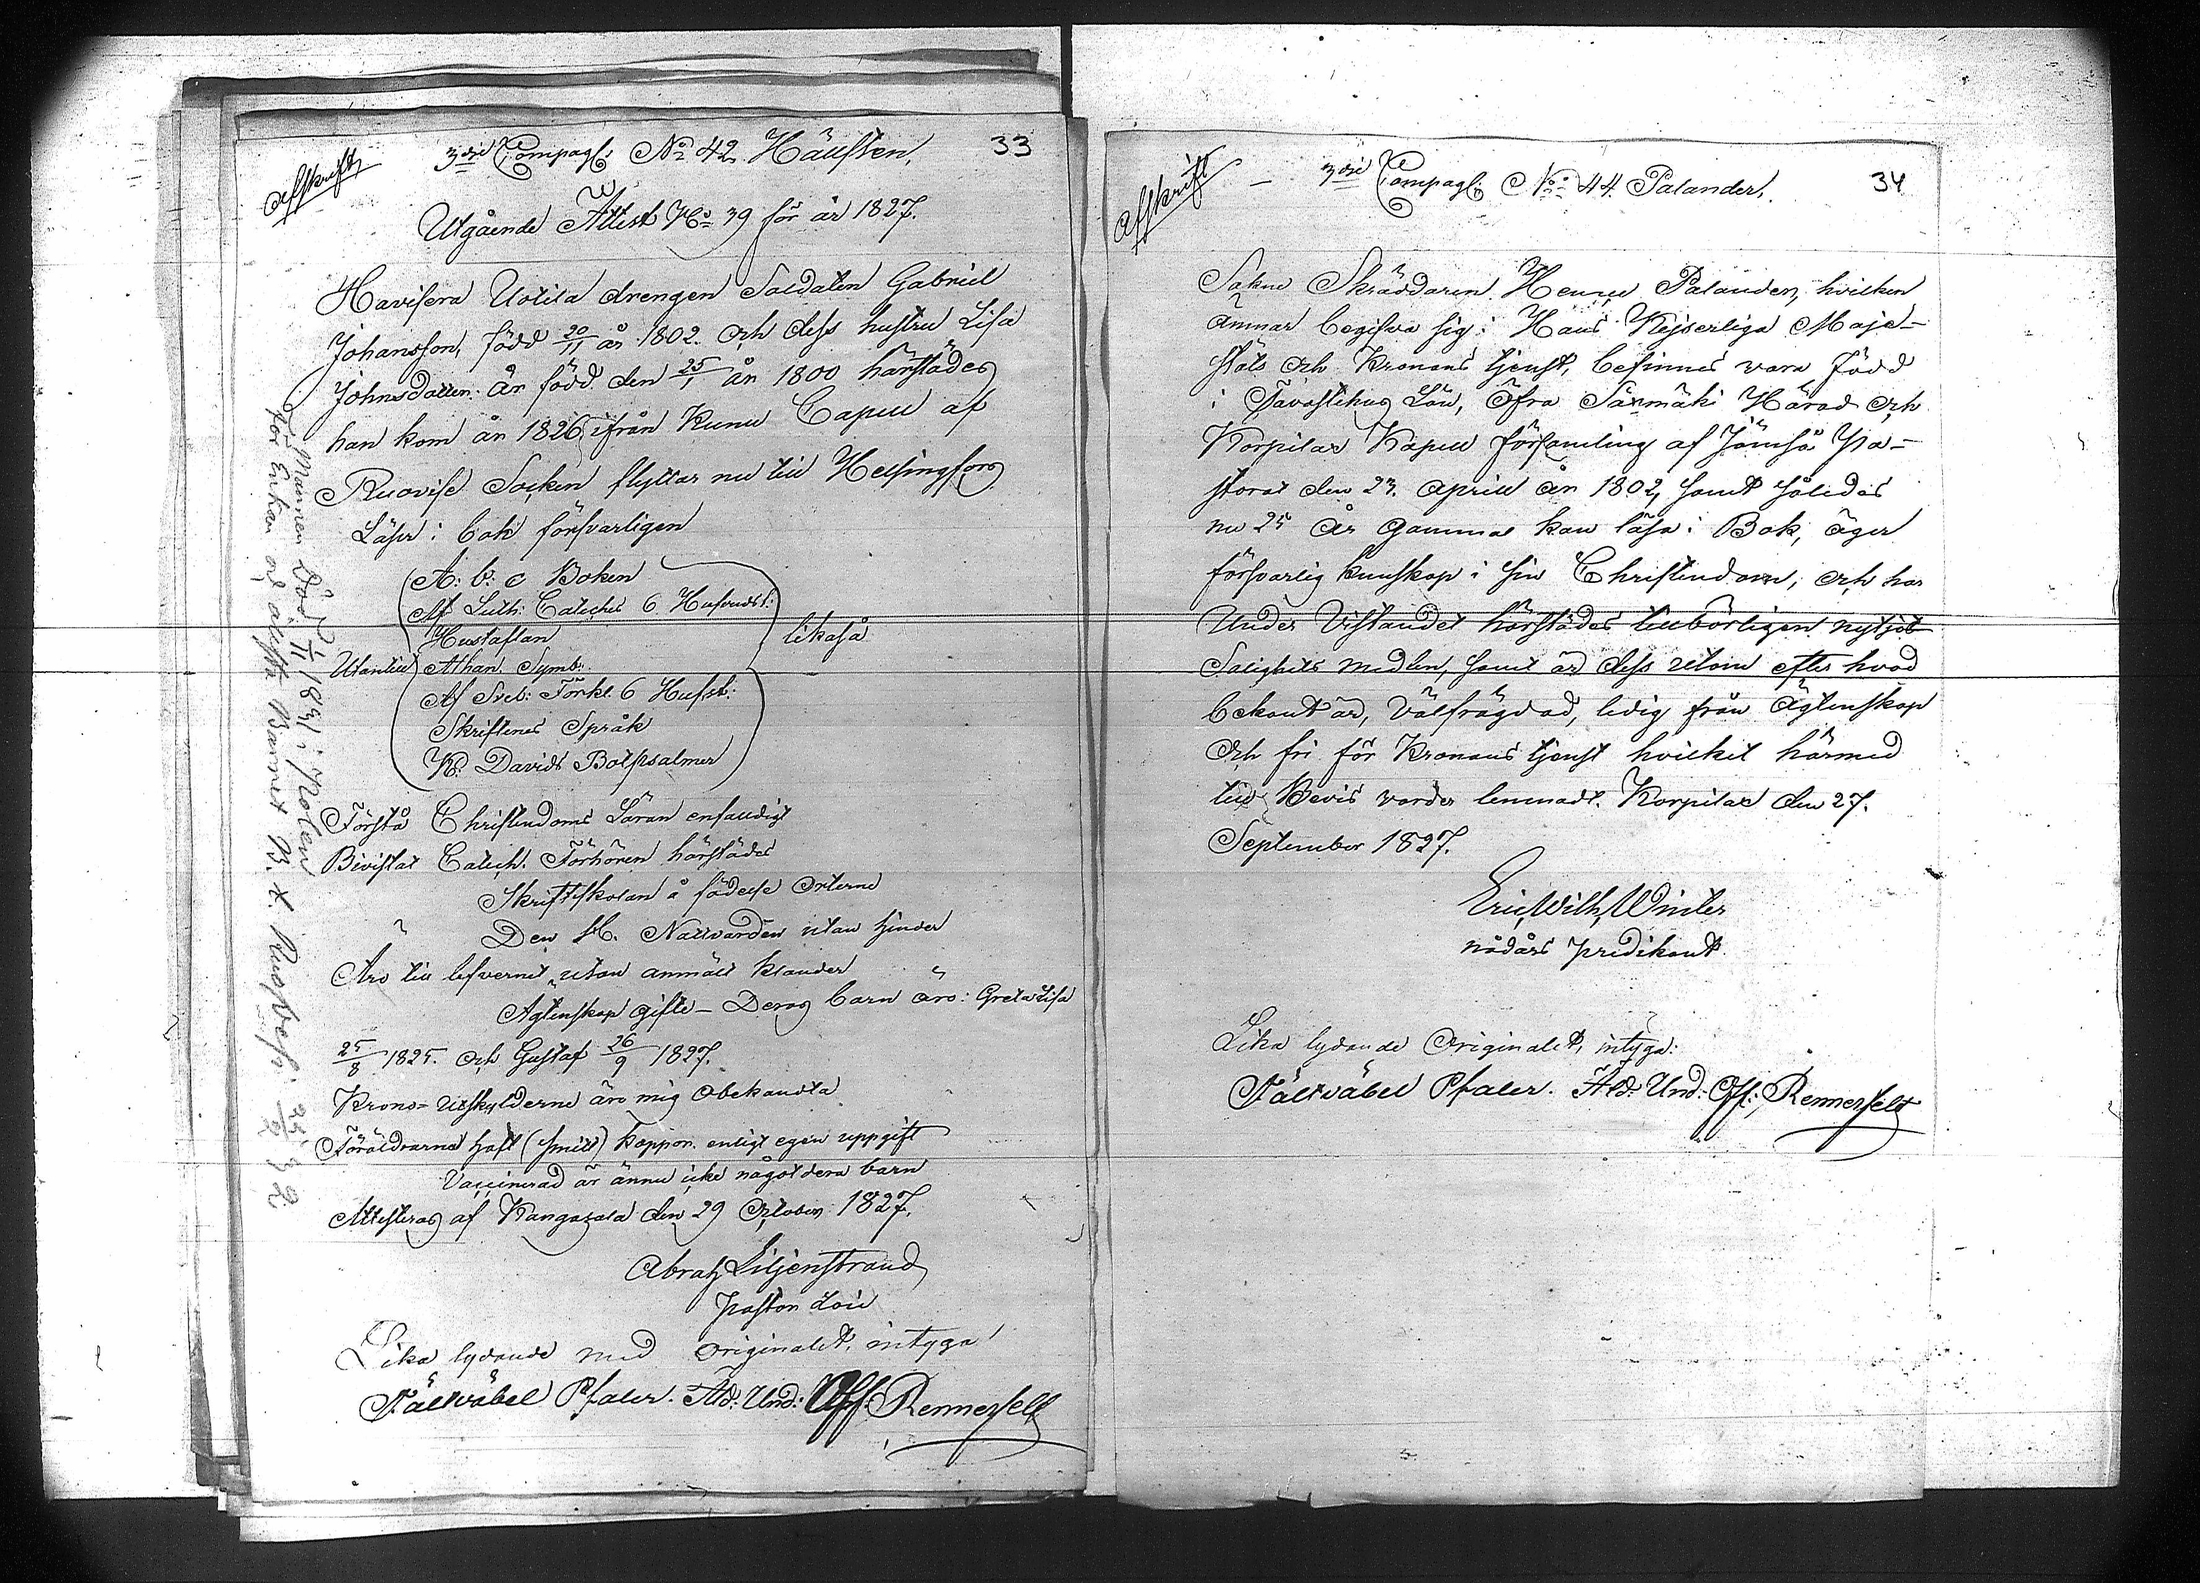 33
Afskrift
3die Compag: No 42 Häusten.
Utgående Attest No 39 för år 1827.
Havisera Uotila drengen Soldaten Gabriel
Johansson, född 20/11 år 1802. och dess hustru Lisa
Johnsdotter är född den 25/1 år 1800 härstädes
han kom år 1826 ifrån Kuru Capell af
Ruovesi Socken flyttar nu till Helsingfors
Läser i bok försvarligen
A: b: c Boken
Af Luth: Cateches 6 Hufvudst:
Hustaflan
Utantill Athan. Symb:
likaså
Af Sveb: Förkl. 6 Hufst:
Skriftenes Språk
K. Davids Botpsalmer
Förstå Christendoms Läran enfaldigt
Bivistat Catech. Förhören härstädes
Skriftskolan å födelse orterne
Den H. Nattvarden utan hinder
Äro till lefvernet utan anmält klander
Ägtenskap gifte - Deras barn äro: Greta Lisa
25/8 1825. och Gustaf 26/9 1827.
Krono-utskylderne äro mig obekandta
Föräldrarna haft (smitt) koppor. enligt egen uppgift
Vaccinerad är ännu icke någotdera barn
Attesteras af Kangasala den 29 October 1827.
Abrah Liljenstrand
Pastor Loci
Lika lydande med originalet, intyga
Fältväbel Pfaler. Äld: Und: Off: Rennerfelt
Mannen död 1831 i Polen
för Enkan och Barnet
34
Afskrift
3die Compag: No 44. Palander.
Sokne Skräddaren Henric Palander, hvilken
ämnar begifva sig i Hans Kejserliga Maje-
stäts och Kronans tjenst, befinnes vara född
i Tavastehus Län, Öfra Säxmäki Härad och
Korpilax Kapell församling af Jämsä Pa-
storat den 23. April år 1802, samt således
nu 25 år gammal kan läsa i Bok, äger
försvarlig kunskap i sin Christendom, och har
Under Vistandet härstädes tillbörligen nytjat
Salighets medlen, samt är dess utom efter hvad
bekant är, välfrägdad, ledig från Ägtenskap
och fri för Kronans tjenst hvilket härmed
till Bevis varder lemnadt. Korpilax den 27.
September 1827.
Eric Wilh. Winter
nådårs predikant.
Lika lydande Originalet, intyga:
Fältväbel Pfaler. Äld: Und: Off: Rennerfelt